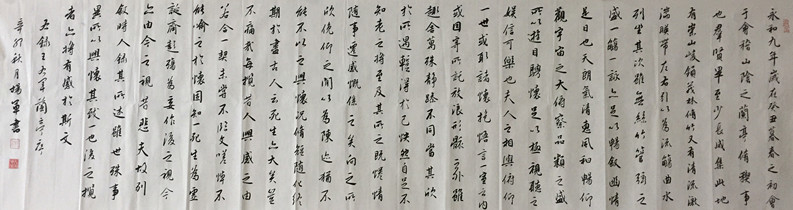 永和九年歲在癸丑暮春之初會
于會稽山陰之蘭亭脩禊事
也群賢畢至少長咸集此地
有崇山峻領茂林脩竹又有清流激
湍暎帶左右引以為流觴曲水
列坐其次雖無絲竹管弦之
盛一觴一詠亦足以暢敘幽情
是日也天朗氣清惠風和暢仰
觀宇宙之大俯察品類之盛
所以遊目騁懷足以極視聽之
娛信可樂也夫人之相與俯仰
一世或取諸懷抱悟言一室之內
或因寄所託放浪形骸之外雖
趣舍萬殊靜躁不同當其欣
於所遇暫得於己快然自足不
知老之將至及其所之既惓情
隨事遷感慨係之矣向之所
欣俛仰之間以為陳迹猶
能不以之興懷況脩短隨化終
期於盡古人云死生亦大矣豈
不痛哉每攬昔人興感之由
若合一契未嘗不臨文嗟悼不
能喻之於懷固知死生為虛
誕齊彭殤為妄作後之視今
亦由今之視昔悲夫故列
敘時人錄其所述雖世殊事
異所以興懷其致一也後之攬
者亦將有感於斯文
錄王右軍蘭亭序
辛卯秋月楊軍書